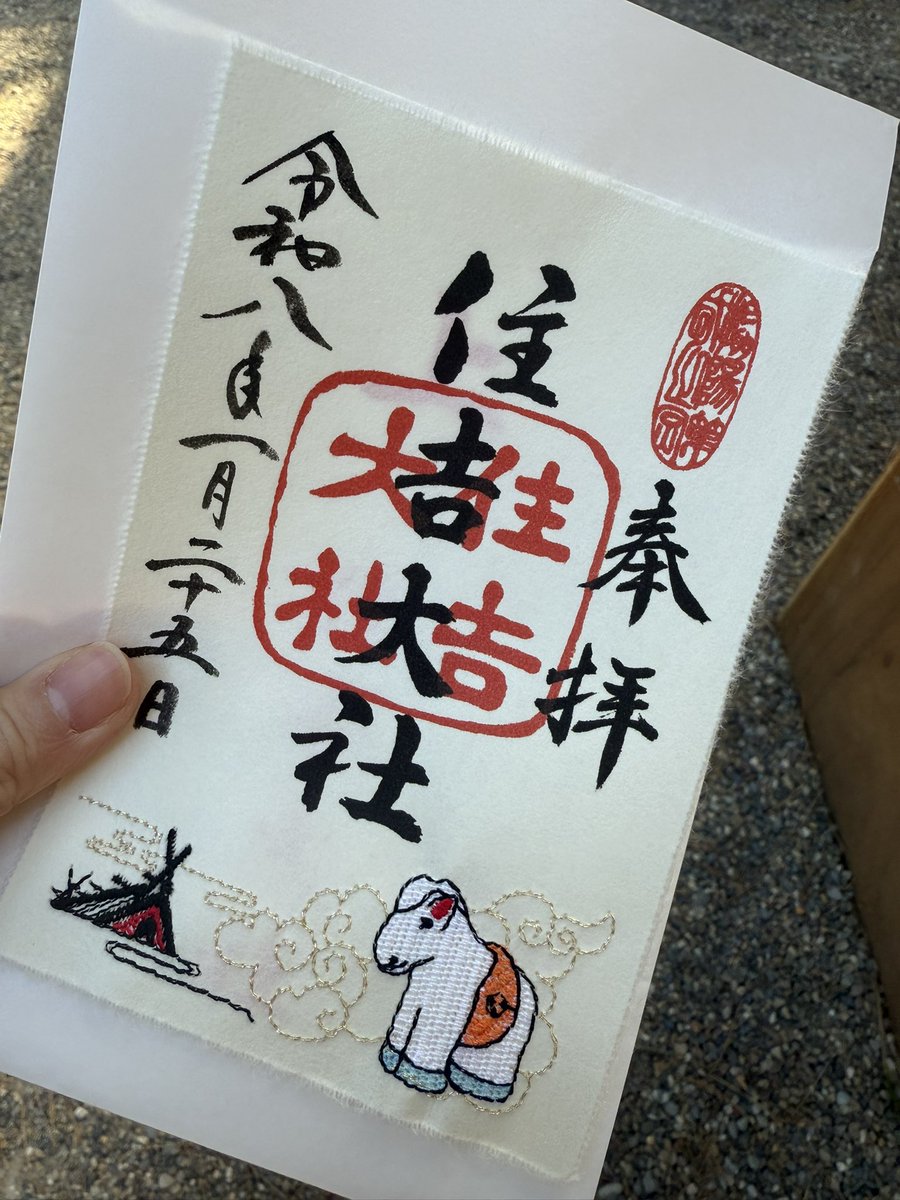 奉拝
住吉大社
住吉
大社
令和八年一月二十五日